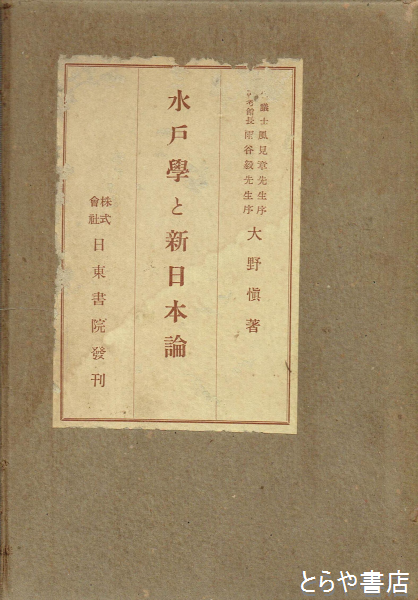 議士風見章先生序
館長雨谷毅先生序
大野愼著
水戸學と新日本論
株式會社 日東書院發刊
とらや書店